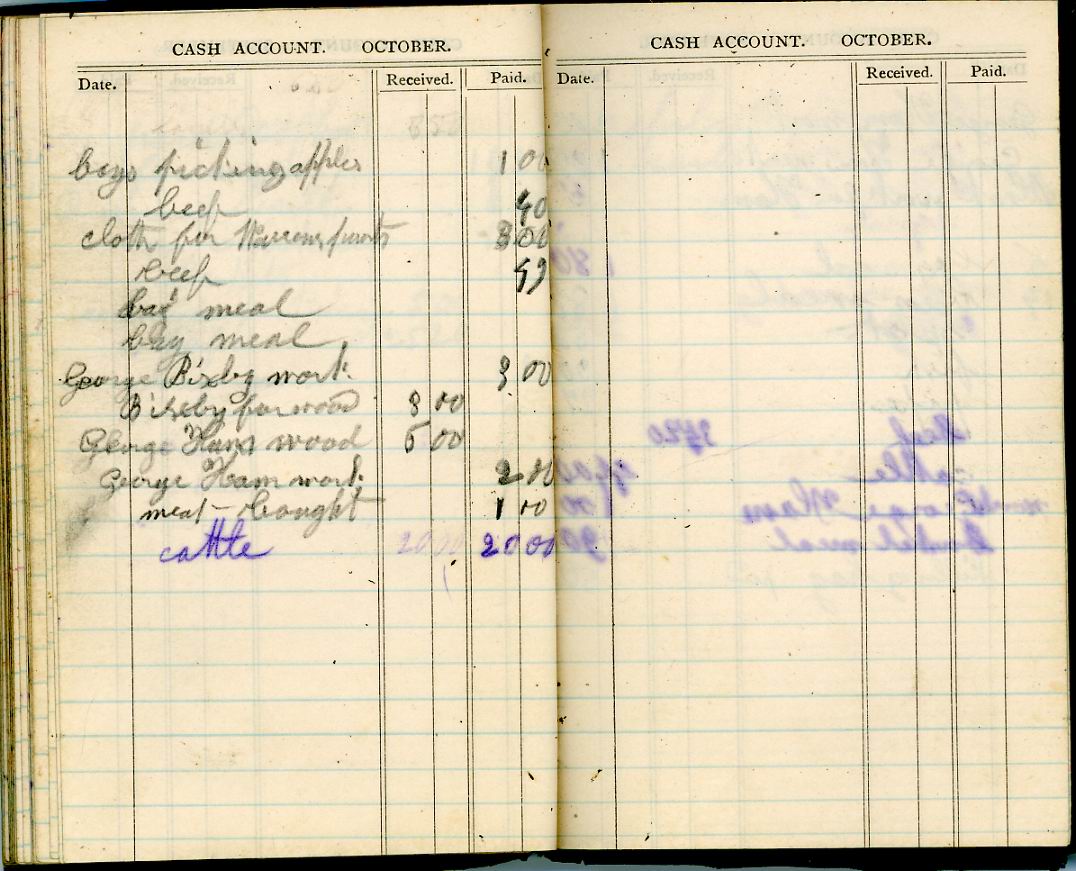 CASH ACCOUNT. OCTOBER.
Date. Received. Paid.
boys picking apples 1 00
beef 40
cloth for pants 3 00
beef
bag meal
bag meal
George Bixby work 3 00
Bixby for wood 3 00
George Ham wood 5 00
George Ham work 2 00
meat - bought 1 00
cattle 20 00 20 00
CASH ACCOUNT. OCTOBER.
Date. Received. Paid.